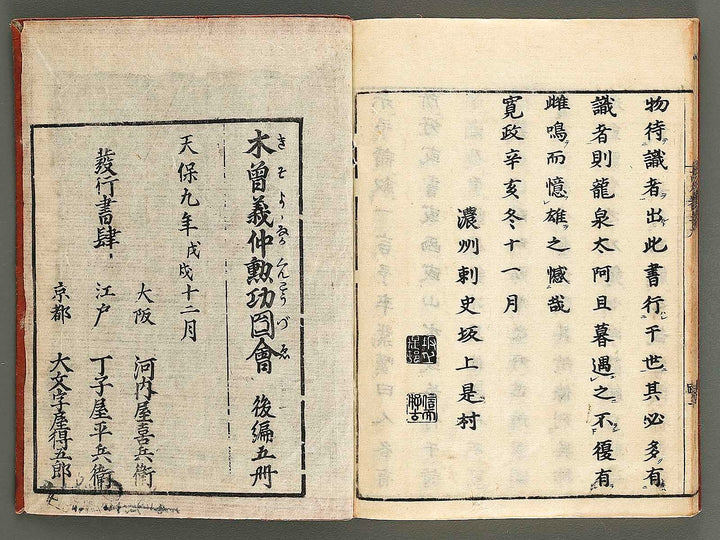 物待識者出此書行于世其必多有
識者則龍泉太阿且暮遇之不復有
雌鳴而憶雄之憾哉
寛政辛亥冬十一月
濃州刺史坂上是村
木曾義仲勲功図會 後編五册
きそよしなかくんこうづゑ
天保九年戊戌十二月
發行書肆
大阪 河内屋喜兵衛
江戸 丁子屋平兵衛
京都 大文字屋得五郎